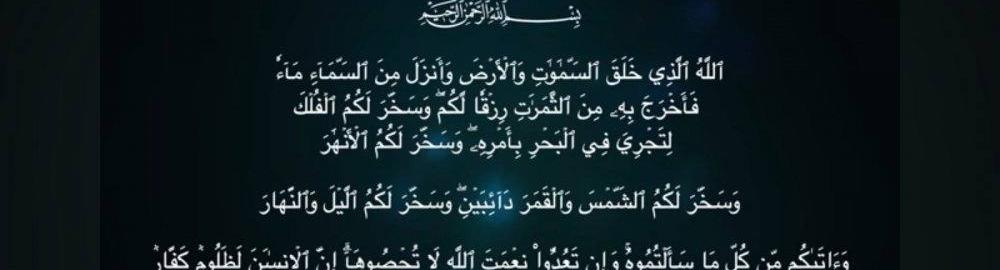 بِسْمِ ٱللَّهِ ٱلرَّحْمَٰنِ ٱلرَّحِيمِ
ٱللَّهُ ٱلَّذِي خَلَقَ ٱلسَّمَٰوَٰتِ وَٱلْأَرْضَ وَأَنزَلَ مِنَ ٱلسَّمَآءِ مَآءً
فَأَخْرَجَ بِهِۦ مِنَ ٱلثَّمَرَٰتِ رِزْقًا لَّكُمْۖ وَسَخَّرَ لَكُمُ ٱلْفُلْكَ
لِتَجْرِيَ فِي ٱلْبَحْرِ بِأَمْرِهِۦۖ وَسَخَّرَ لَكُمُ ٱلْأَنْهَٰرَ
وَسَخَّرَ لَكُمُ ٱلشَّمْسَ وَٱلْقَمَرَ دَآئِبَيْنِۖ وَسَخَّرَ لَكُمُ ٱلَّيْلَ وَٱلنَّهَارَ
وَءَاتَىٰكُم مِّن كُلِّ مَا سَأَلْتُمُوهُۚ وَإِن تَعُدُّوا۟ نِعْمَتَ ٱللَّهِ لَا تُحْصُوهَآۗ إِنَّ ٱلْإِنسَٰنَ لَظَلُومٌ كَفَّارٌ